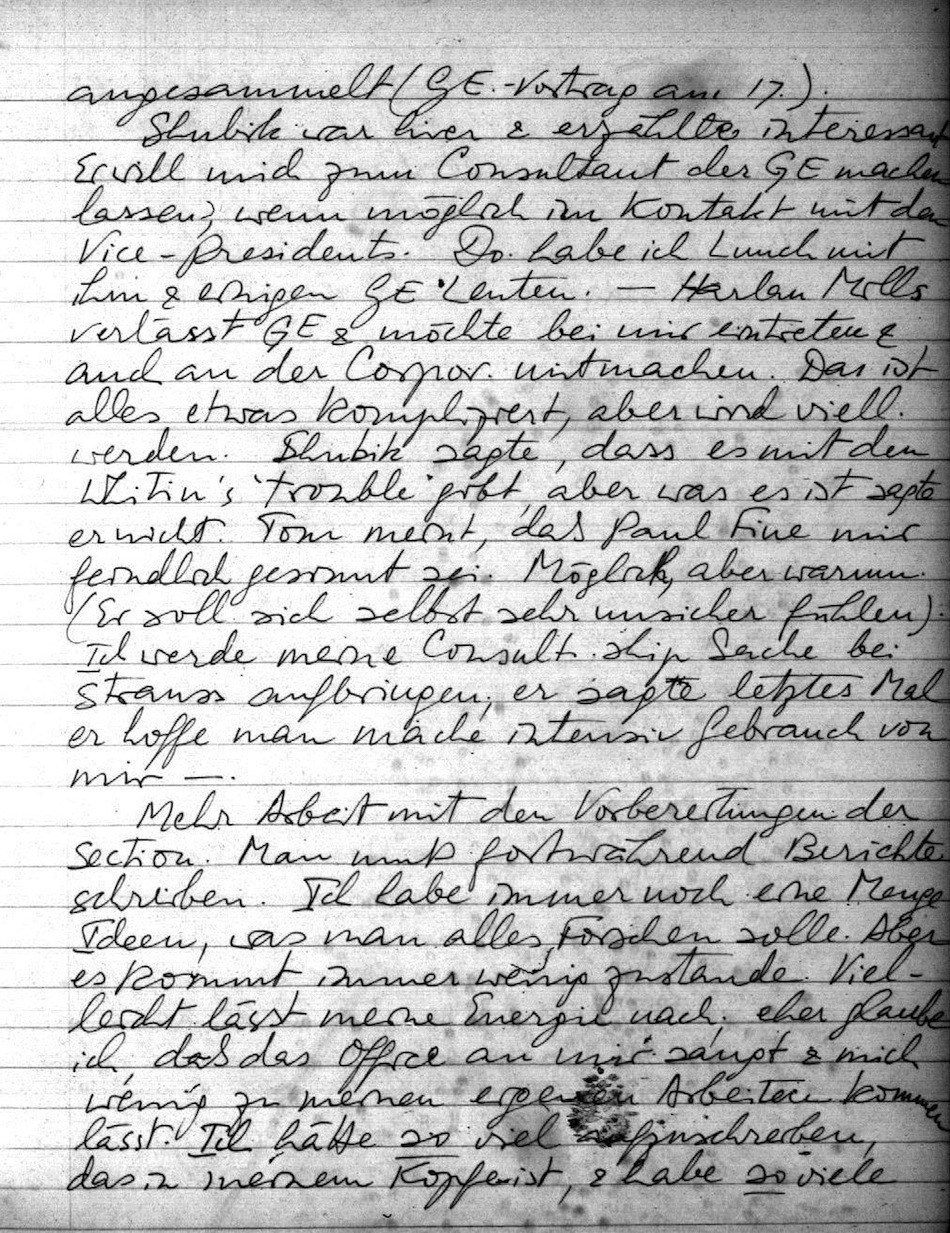 angesammelt (GE.-Vortrag am 17.).
Shubik war hier & erzählte interessant
Er will mich zum Consultant der GE machen
lassen, wenn möglich im Kontakt mit den
Vice-presidents. Do. habe ich Lunch mit
ihm & einigen GE Leuten. — Harlan Mills
verlässt GE & möchte bei mir eintreten &
auch an der Corpor. mitmachen. Das ist
alles etwas kompliziert, aber wird viell.
werden. Shubik sagte, dass es mit den
Whitin's 'trouble' gibt, aber was es ist sagte
er nicht. Tom meint, daß Paul Fine mir
feindlich gesinnt sei. Möglich, aber warum.
(Er soll sich selbst sehr unsicher fühlen).
Ich werde meine Consult.ship Sache bei
Strauss aufbringen, er sagte letztes Mal
er hoffe man mache intensiv Gebrauch von
mir —.
Mehr Arbeit mit den Vorbereitungen der
section. Man muß fortwährend Berichte
schreiben. Ich habe immer noch eine Menge
Ideen, was man alles forschen solle. Aber
es kommt immer wenig zustande. Viel-
leicht lässt meine Energie nach; eher glaube
ich, daß das Office an mir saugt & mich
wenig zu meinen eigenen Arbeiten kommen
lässt. Ich hätte so viel aufzuschreiben,
das in meinem Kopfe ist, & habe so viele